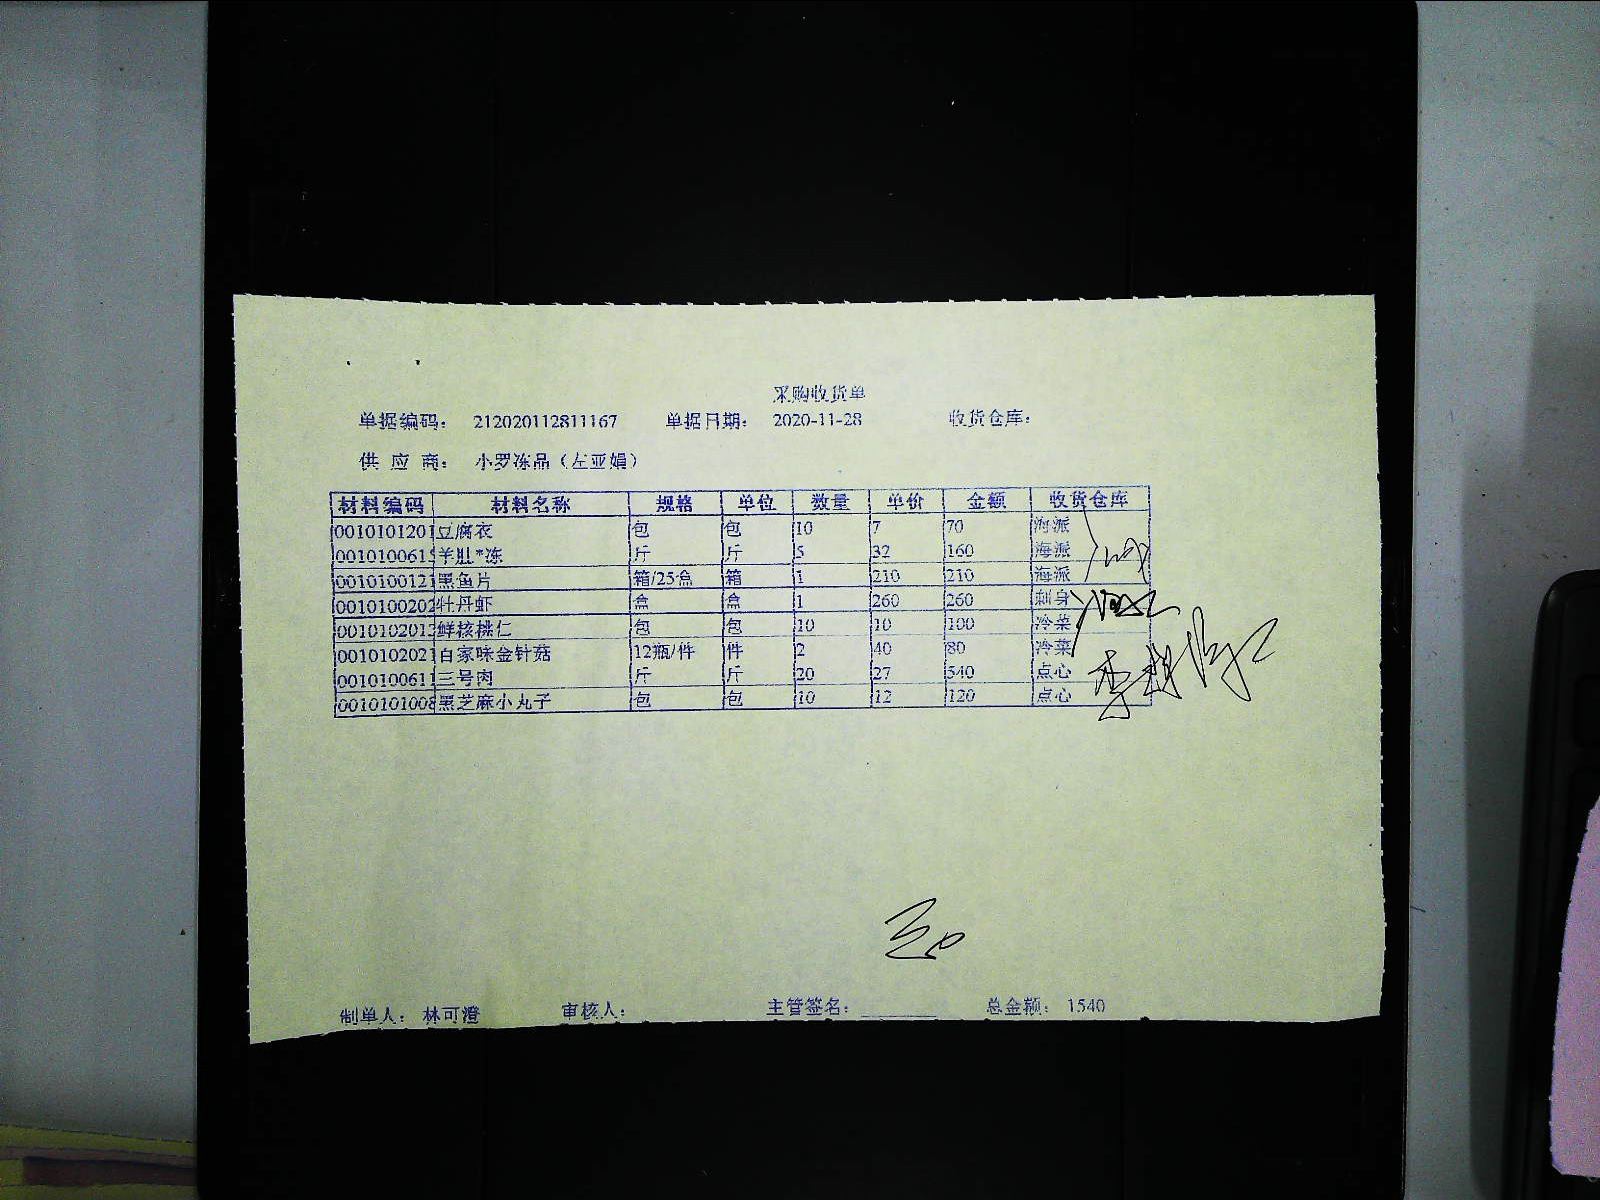 采购收货单
单据编码： 212020112811167 单据日期： 2020-11-28 收货仓库：
供 应 商： 小罗冻品（左亚娟）
材料编码 材料名称 规格 单位 数量 单价 金额 收货仓库
0010101201 豆腐衣 包 包 10 7 70 海派
001010061 羊肚*冻 斤 斤 5 32 160 海派
0010100121 黑鱼片 箱/25盒 箱 1 210 210 海派
0010100202 牡丹虾 盒 盒 1 260 260 刺身
001010201 鲜核桃仁 包 包 10 10 100 冷菜
0010102021 百家味金针菇 12瓶/件 件 2 40 80 冷菜
0010100611 三号肉 斤 斤 20 27 540 点心
001010100 黑芝麻小丸子 包 包 10 12 120 点心
制单人： 林可澄 审核人： 主管签名： 总金额： 1540